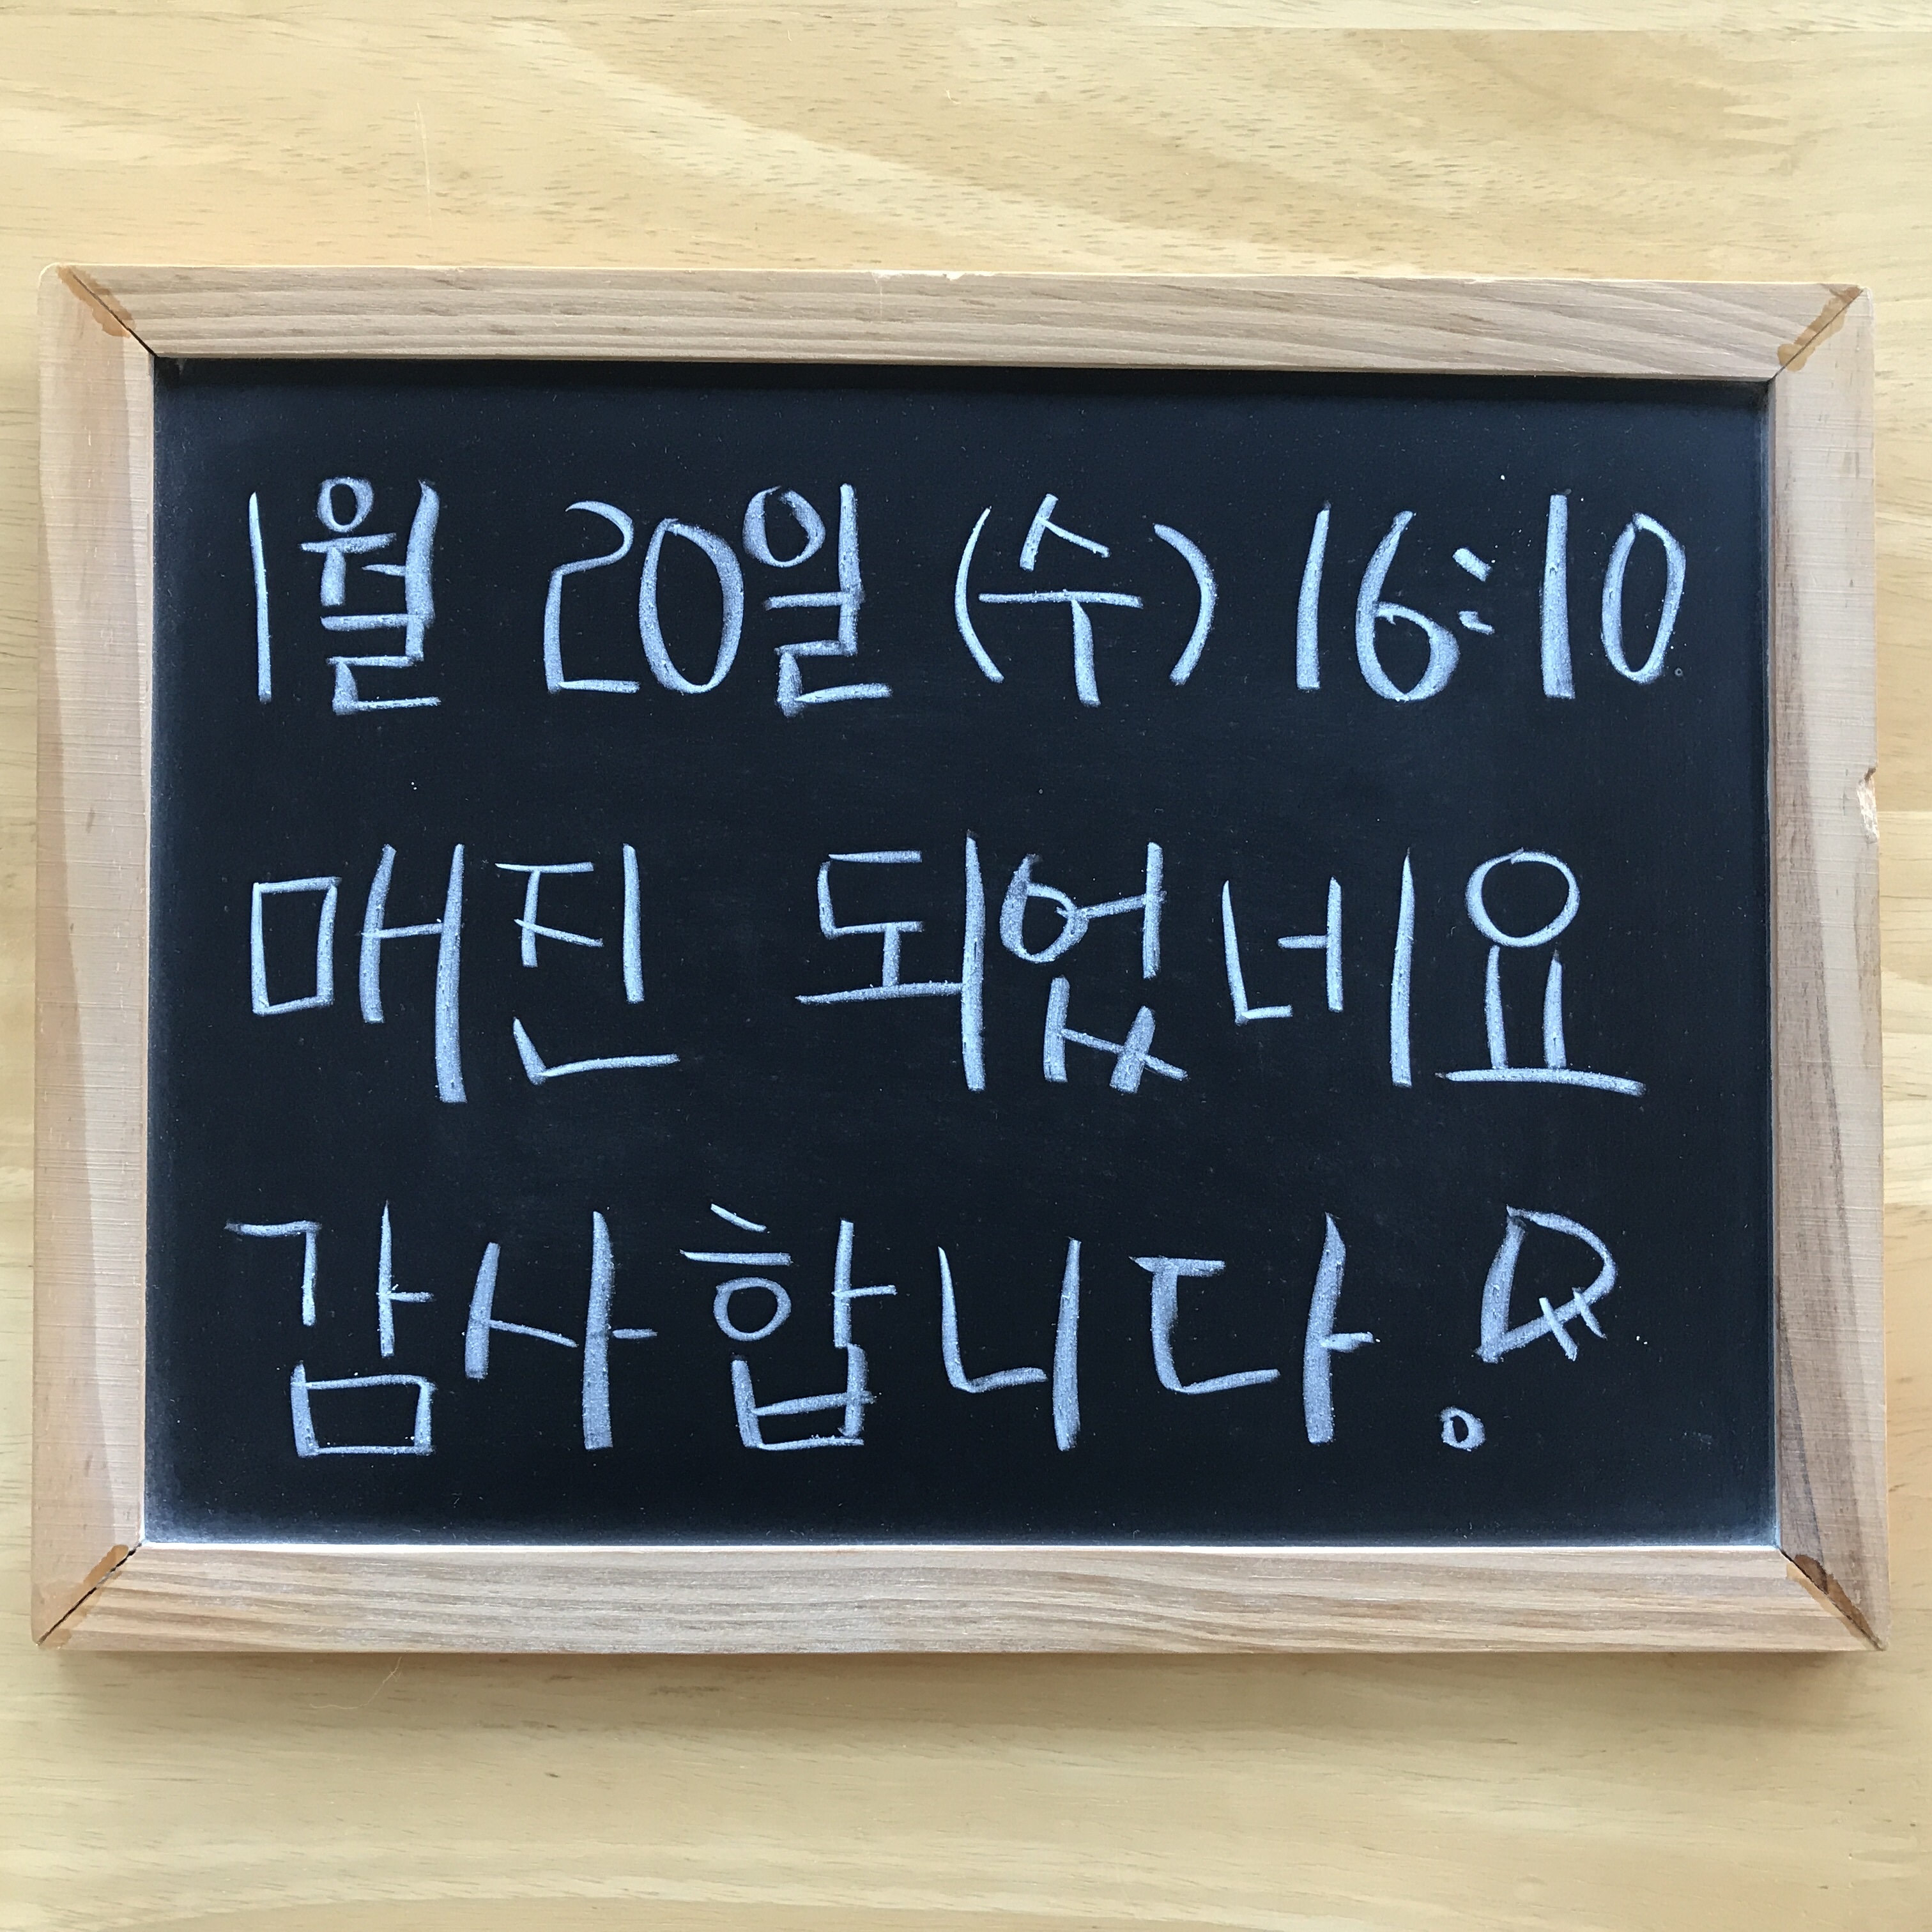 1월 20일 (수) 16:10
매진 되었네요
감사합니다.